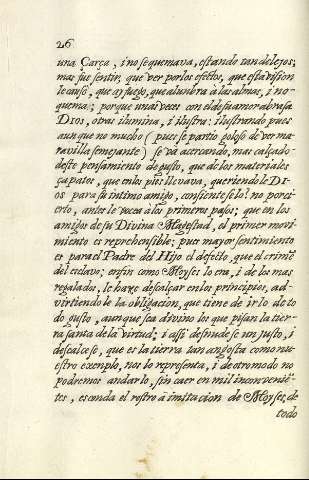 26
una Çarça, i no se quemava, estando tan de lejos;
mas fue sentir, que ver por los efetos, que esta vision
le causò, que ay fuego, que alumbra à las almas, i no
quema; porque unas veces con el de su amor abrasa
DIOS, otras ilumina, i ilustra: ilustrando pues
aunque no mucho (pues se partio goloso de ver ma-
ravilla semejante) se và acercando, mas calçado
deste pensamiento de gusto, que de los materiales
çapatos, que en los pies llevava, queriendole DI-
OS para su intimo amigo, consientese lo? no por ci-
erto, antes le vocea à los primeros pasos; que en los
amigos de su Divina Magestad, el primer movi-
miento es reprehensible; pues mayor sentimiento
es para el Padre del Hijo el defeto, que el crimē
del esclavo; en fin como Moyses lo era, i de los mas
regalados, le haçe descalçar en los principios, ad-
virtiendole la obligacion, que tiene de irlo de to
do gusto, aunque sea divino los que pisan la tier-
ra santa de la virtud; i assi desnudese un justo, i
descalcese, que es la tierra tan angosta como nu-
estro exemplo, nos lo representa, i de otro modo no
podremos andarlo, sin caer en mil inconveniē-
tes, esconda el rostro à imitacion de Moyses, de
todo